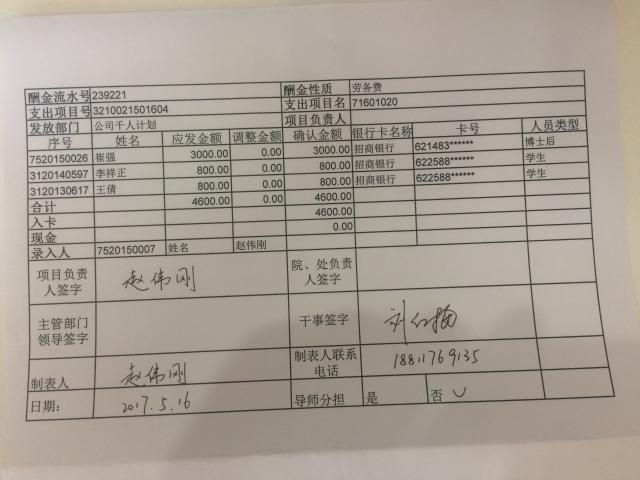 酬金流水号 239221 酬金性质 劳务费
支出项目号 3210021501604 支出项目名 71601020
发放部门 公司千人计划 项目负责人
序号 姓名 应发金额 调整金额 确认金额 银行卡名称 卡号 人员类型
7520150026 崔强 3000.00 0.00 3000.00 招商银行 621483****** 博士后
3120140597 李祥正 800.00 0.00 800.00 招商银行 622588****** 学生
3120130617 王倩 800.00 0.00 800.00 招商银行 622588****** 学生
合计 4600.00 0.00 4600.00
入卡 4600.00
现金 0.00
录入人 7520150007 姓名 赵伟刚
项目负责人签字 赵伟刚 院、处负责人签字
主管部门领导签字 干事签字 刘红梅
制表人 赵伟刚 制表人联系电话 18811769135
日期: 2017.5.16 导师分担 是 否 ∨